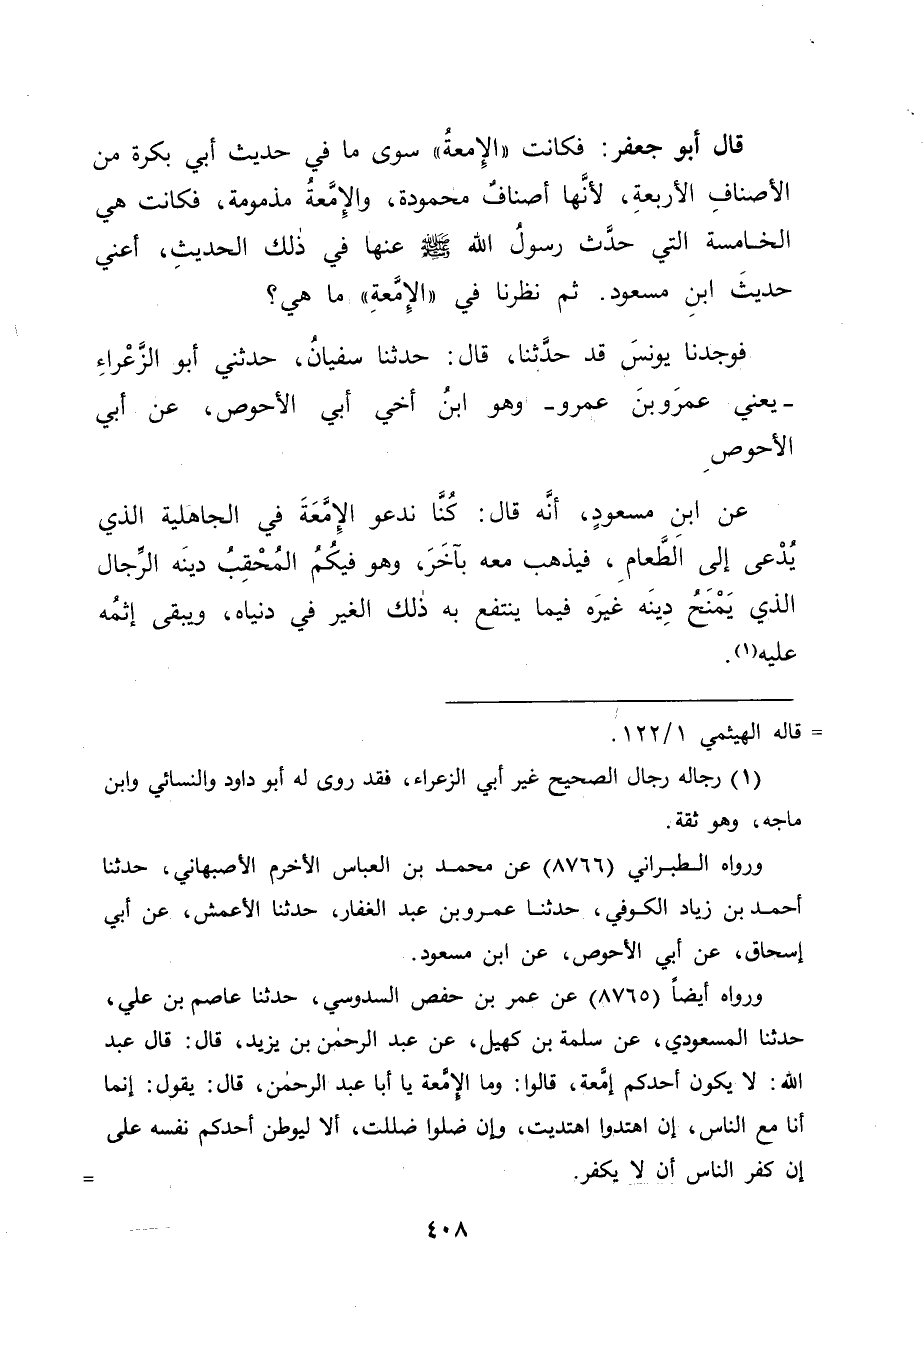 قال أبو جعفر: فكانت «الإمعةُ» سوى ما في حديث أبي بكرة من
الأصنافِ الأربعةِ، لأنَّها أصنافٌ محمودة، والإمَّعةُ مذمومة، فكانت هي
الخامسة التي حدَّث رسولُ الله ﷺ عنها في ذٰلك الحديثِ، أعني
حديثَ ابنِ مسعود. ثم نظرنا في «الإمَّعةِ» ما هي؟
فوجدنا يونسَ قد حدَّثنا، قال: حدثنا سفيانُ، حدثني أبو الزَّعْراءِ
ـ يعني عمرَو بنَ عمرو ـ وهو ابنُ أخي أبي الأحوص، عن أبي
الأحوصِ
عن ابنِ مسعودٍ، أنَّه قال: كُنَّا ندعو الإِمَّعَةَ في الجاهلية الذي
يُدْعى إلى الطَّعامِ، فيذهب معه بآخَرَ، وهو فيكُمُ المُحْقِبُ دينَه الرِّجال
الذي يَمْنَحُ دِينَه غيرَه فيما ينتفع به ذٰلك الغير في دنياه، ويبقى إثمُه
عليه(١).
= قاله الهيثمي ١٢٢/١.
(١) رجاله رجال الصحيح غير أبي الزعراء، فقد روى له أبو داود والنسائي وابن
ماجه، وهو ثقة.
ورواه الطبراني (٨٧٦٦) عن محمد بن العباس الأخرم الأصبهاني، حدثنا
أحمد بن زياد الكوفي، حدثنا عمرو بن عبد الغفار، حدثنا الأعمش، عن أبي
إسحاق، عن أبي الأحوص، عن ابن مسعود.
ورواه أيضاً (٨٧٦٥) عن عمر بن حفص السدوسي، حدثنا عاصم بن علي،
حدثنا المسعودي، عن سلمة بن كهيل، عن عبد الرحمٰن بن يزيد، قال: قال عبد
الله: لا يكون أحدكم إمَّعة، قالوا: وما الإمَّعة يا أبا عبد الرحمٰن، قال: يقول: إنما
أنا مع الناس، إن اهتدوا اهتديت، وإن ضلوا ضللت، ألا ليوطن أحدكم نفسه على
إن كفر الناس أن لا يكفر. =
٤٠٨